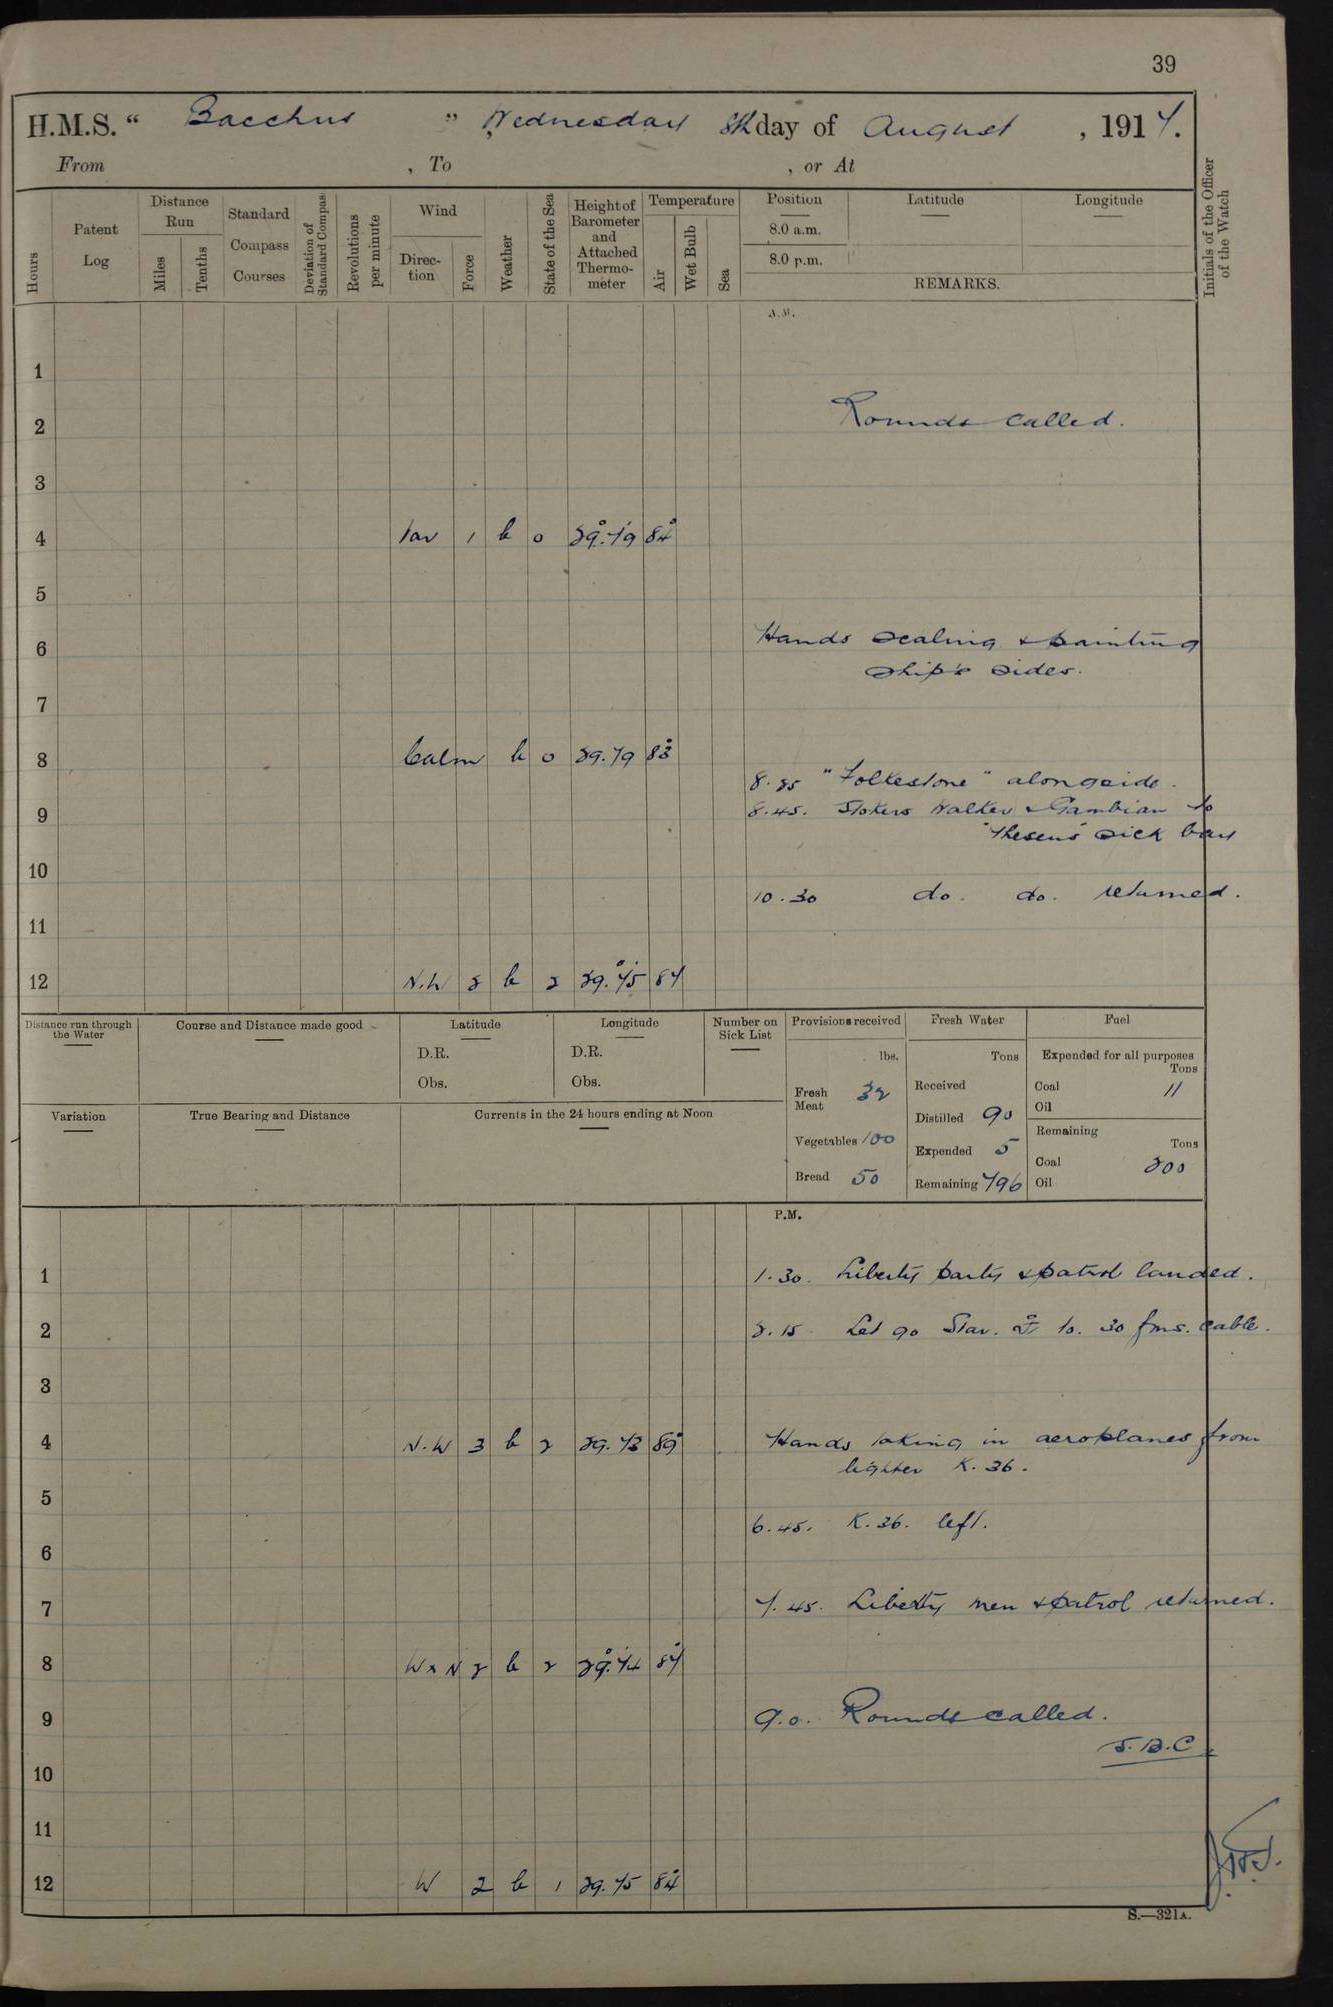 39
H.M.S. “ Bacchus ” Wednesday 8th day of August , 1917.
From , To , or At
Hours
Patent Log
Distance Run
Miles
Tenths
Standard Compass Courses
Deviation of Standard Compass
Revolutions per minute
Wind
Direction
Force
Weather
State of the Sea
Height of Barometer and Attached Thermometer
Temperature
Air
Wet Bulb
Sea
Position
8.0 a.m.
8.0 p.m.
Latitude
Longitude
REMARKS.
Initials of the Officer of the Watch
A.M.
1
2 Rounds called.
3
4 Var 1 b 0 29.79 84°
5
6 Hands scaling & painting
ship's sides.
7
8 Calm b 0 29.79 83°
8.25 "Folkestone" alongside.
9 8.45. Stokers Walker & Gambian to
"Theseus" sick bay
10
10.30 do. do. returned.
11
12 N.W 2 b 2 29.75 87
Distance run through the Water
Course and Distance made good
Latitude
D.R.
Obs.
Longitude
D.R.
Obs.
Number on Sick List
Provisions received
lbs.
Fresh Meat 32
Vegetables 100
Bread 50
Fresh Water
Tons
Received
Distilled 90
Expended 5
Remaining 796
Fuel
Expended for all purposes
Tons
Coal 11
Oil
Remaining
Tons
Coal 200
Oil
Variation
True Bearing and Distance
Currents in the 24 hours ending at Noon
P.M.
1 1.30. Liberty party & patrol landed.
2 2.15 Let go Star. ⚓ to. 30 fms. cable.
3
4 N.W 3 b 2 29.73 89° Hands taking in aeroplanes from
lighter K.36.
5
6.45. K.36. left.
6
7 7.45. Liberty men & patrol returned.
8 W x N 2 b 2 29.74 87°
9 9.0. Rounds called.
J.B.C.
10
11
12 W 2 b 1 29.75 84°
S.—321A.